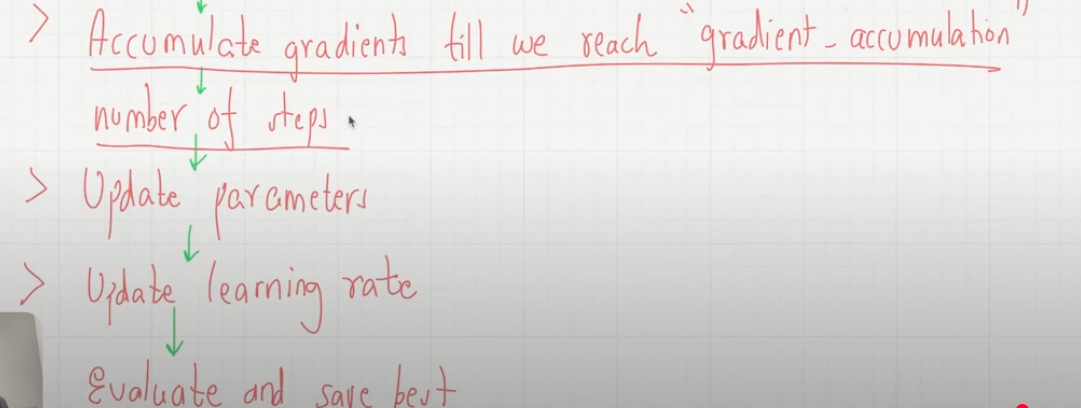 > Accumulate gradients till we reach "gradient_accumulation"
number of steps
> Update parameters
> Update learning rate
Evaluate and save best